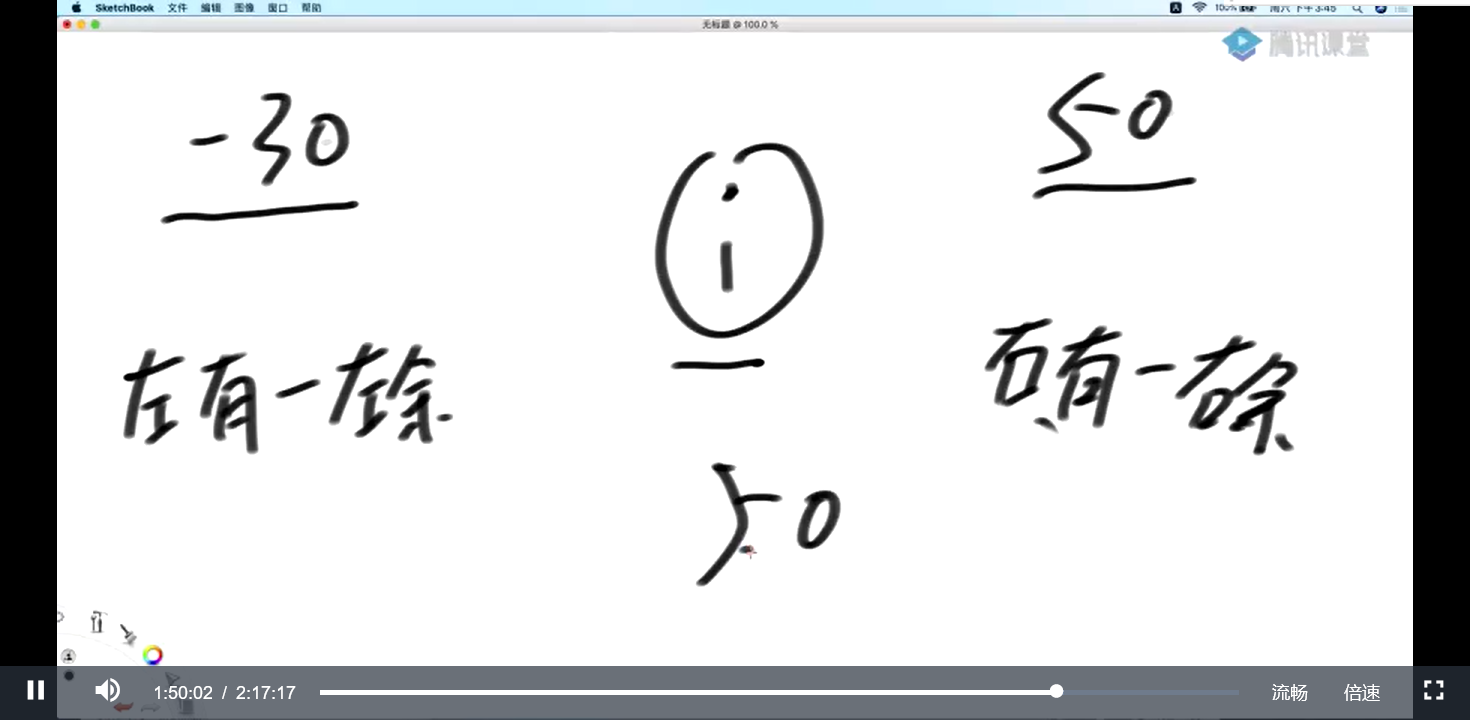 SketchBook 文件 编辑 图像 窗口 帮助
100% 周六下午3:45
无标题 @ 100.0 %
腾讯课堂
-30
50
i
左有-左余
右有-右余
50
1:50:02 / 2:17:17
流畅 倍速